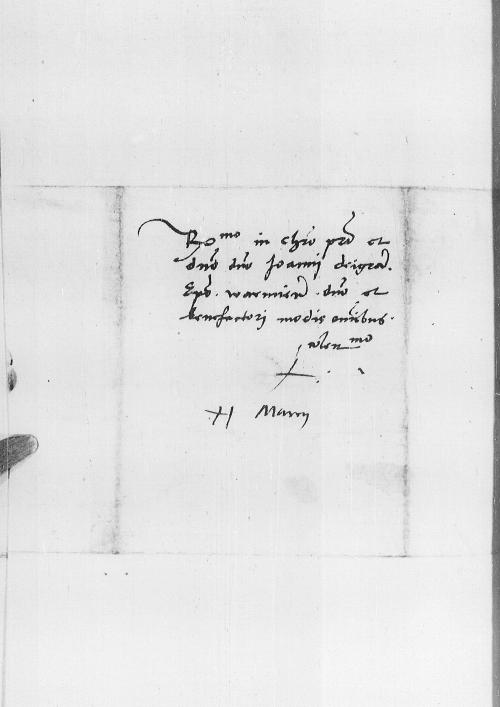 R°mo in chro pre et
dno dno Joanni dei gra.
Epo. warmien. dno et
benefactori modis omibus.
colenmo
H Marty